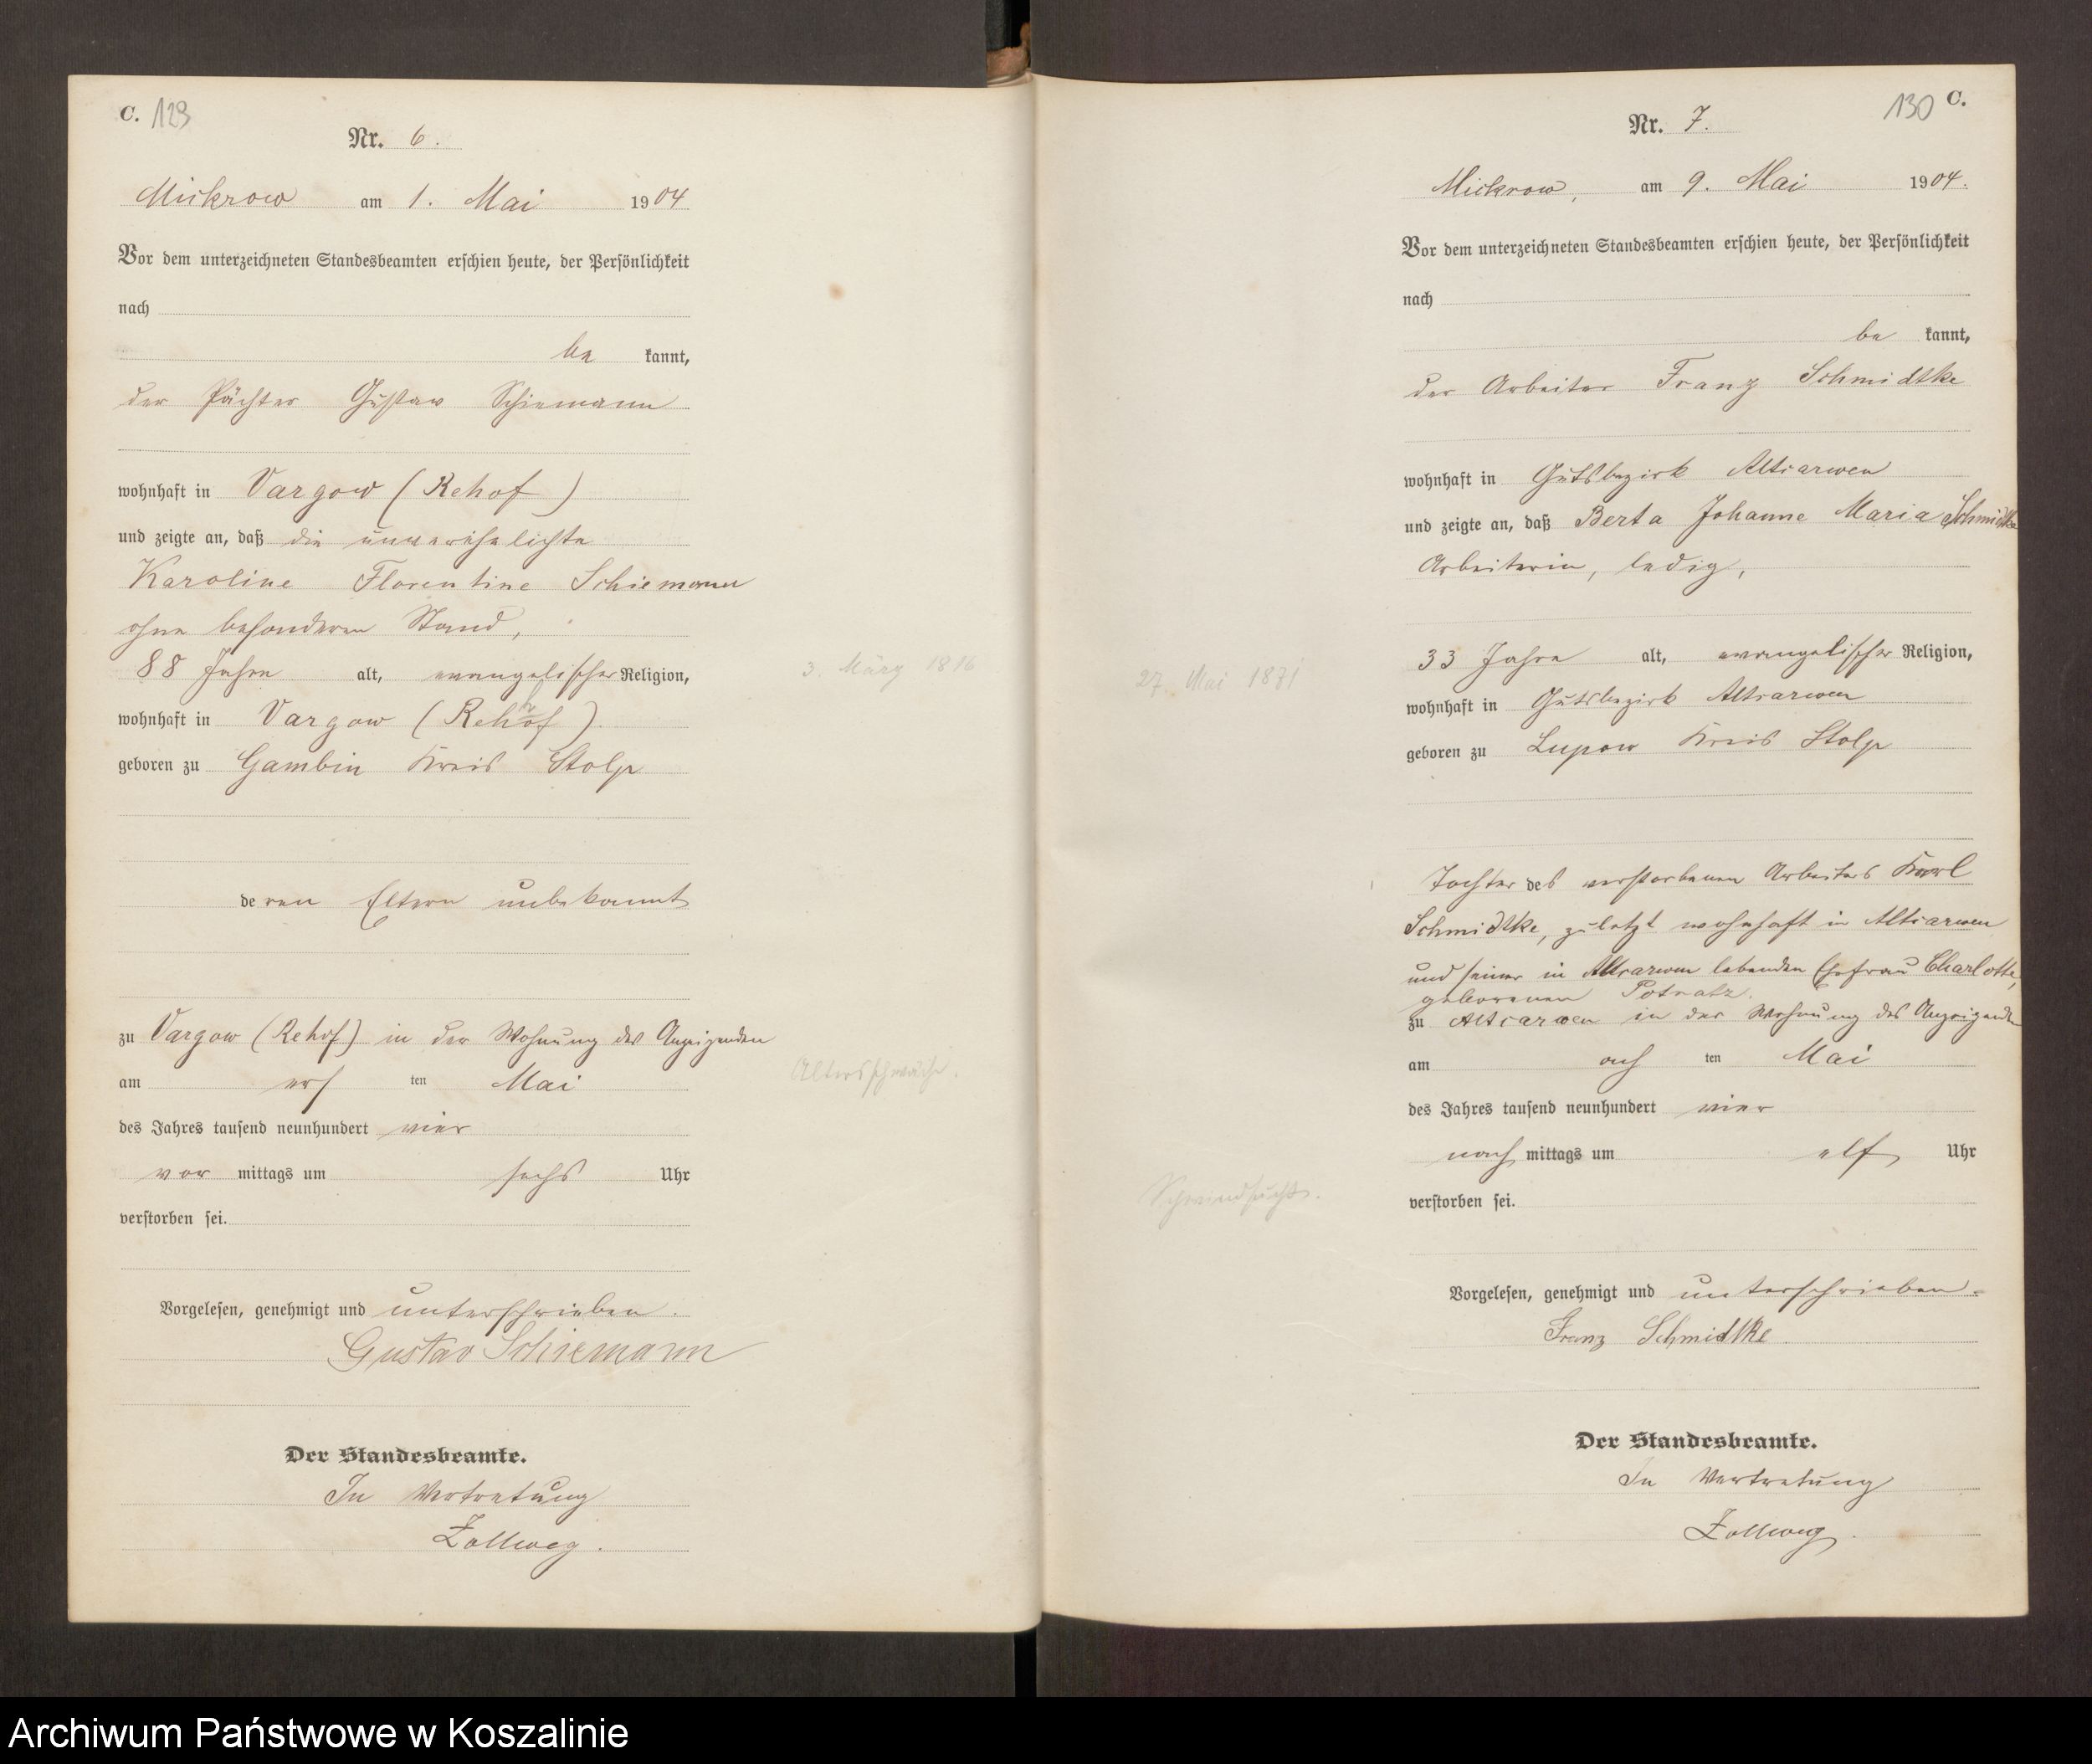 C. 129
Nr. 6.
Mickrow am 1. Mai 1904
Vor dem unterzeichneten Standesbeamten erschien heute, der Persönlichkeit
nach
be kannt,
der Pächter Gustav Schiemann
wohnhaft in Vargow (Rehof)
und zeigte an, daß die unverehelichte
Karoline Florentine Schiemann
ohne besonderen Stand,
88 Jahre alt, evangelischer Religion,
3. März 1816
wohnhaft in Vargow (Rehhof).
geboren zu Gambin Kreis Stolp
deren Eltern unbekannt
zu Vargow (Rehof) in der Wohnung des Anzeigenden
am ersten Mai
Altersschwäche.
des Jahres tausend neunhundert vier
vor mittags um sechs Uhr
verstorben sei.
Vorgelesen, genehmigt und unterschrieben.
Gustav Schiemann
Der Standesbeamte.
In Vertretung
Zollweg.
130 C.
Nr. 7.
Mickrow, am 9. Mai 1904.
Vor dem unterzeichneten Standesbeamten erschien heute, der Persönlichkeit
nach
be kannt,
der Arbeiter Franz Schmidtke
wohnhaft in Gutsbezirk Altsarwen
und zeigte an, daß Berta Johanne Maria Schmidtke
Arbeiterin, ledig,
33 Jahre alt, evangelischer Religion,
27. Mai 1871
wohnhaft in Gutsbezirk Altsarwen
geboren zu Lupow Kreis Stolp
Tochter des verstorbenen Arbeiters Karl
Schmidtke, zuletzt wohnhaft in Altsarwen
und seiner in Altsarwen lebenden Ehefrau Charlotte,
geborenen Potratz.
zu Altsarwen in der Wohnung des Anzeigenden
am achten Mai
des Jahres tausend neunhundert vier
nach mittags um elf Uhr
Schwindsucht.
verstorben sei.
Vorgelesen, genehmigt und unterschrieben.
Franz Schmidtke
Der Standesbeamte.
In Vertretung
Zollweg.
Archiwum Państwowe w Koszalinie